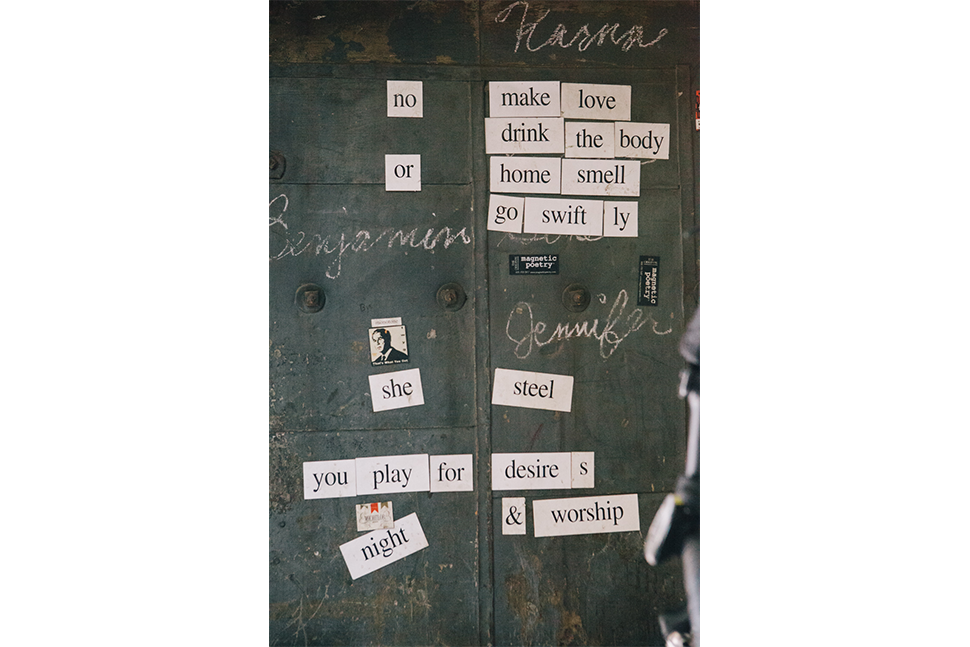 no make love
drink the body
or home smell
go swift ly
Benjamin
magnetic
poetry
magnetic
poetry
Jennifer
she steel
you play for desire s
& worship
night